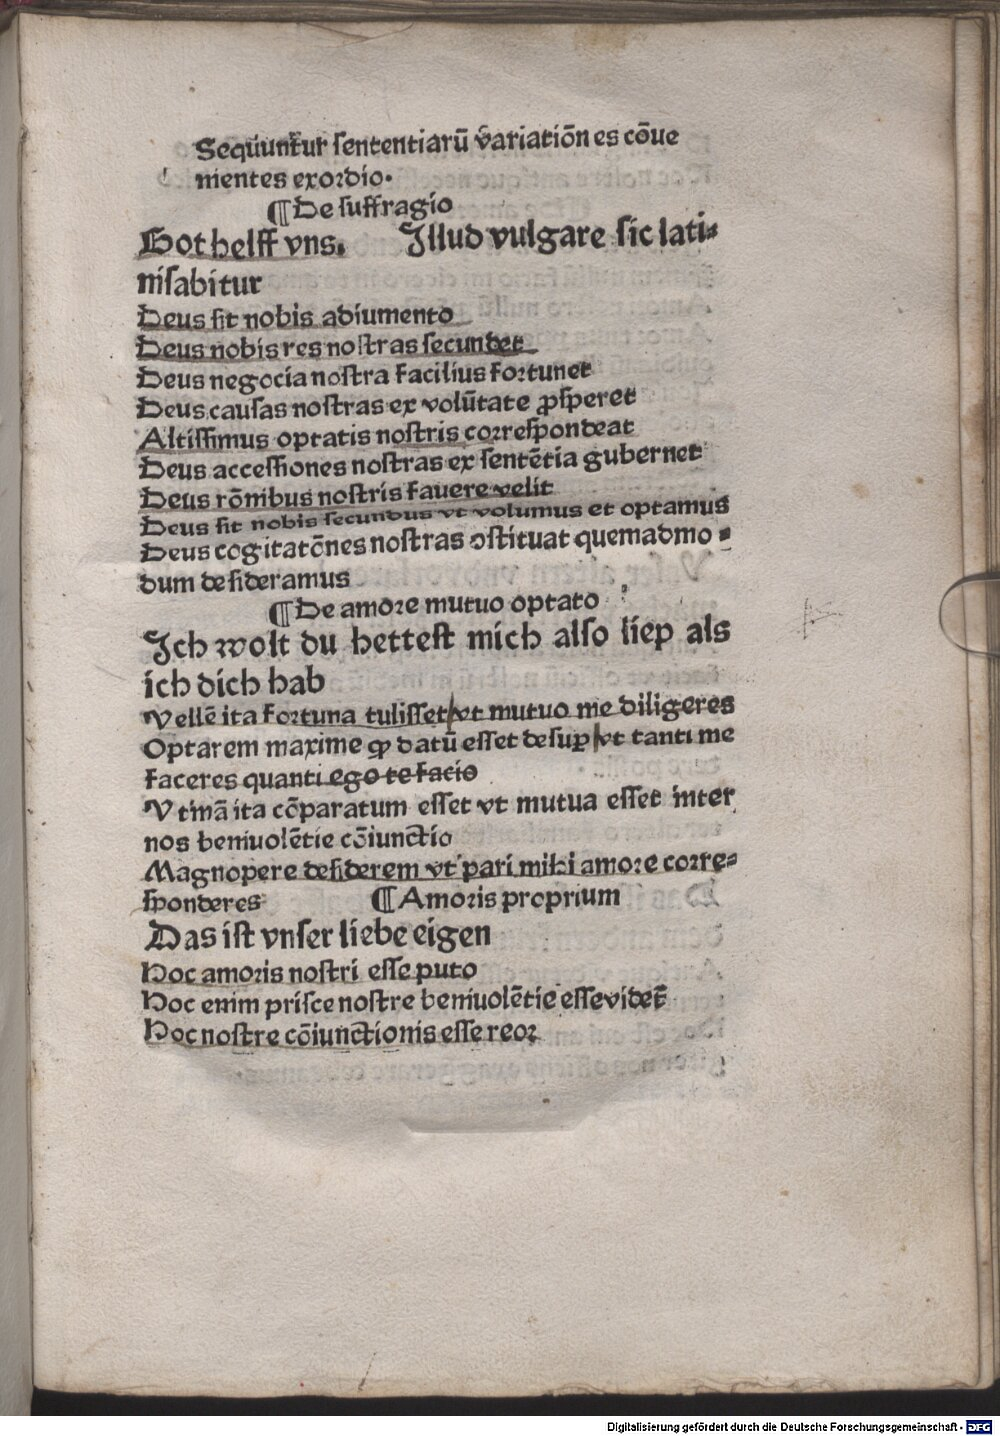 Sequuntur sententiarū variatiōn es cōue
nientes exordio.
¶De suffragio
Got helff vns. Illud vulgare sic lati⸗
nisabitur
Deus sit nobis adiumento
Deus nobis res nostras secundet
Deus negocia nostra facilius fortunet
Deus causas nostras ex volūtate ꝓsperet
Altissimus optatis nostris correspondeat
Deus accessiones nostras ex sentētia gubernet
Deus rōnibus nostris fauere velit
Deus sit nobis secundus vt volumus et optamus
Deus cogitatōnes nostras ↄstituat quemadmo⸗
dum desideramus
¶De amore mutuo optato
Ich wolt du hettest mich also liep als
ich dich hab
Vellē ita fortuna tulisset vt mutuo me diligeres
Optarem maxime ꝙ datū esset desuꝑ vt tanti me
faceres quanti ego te facio
Vtinā ita cōparatum esset vt mutua esset inter
nos beniuolētie cōiunctio
Magnopere desiderem vt pari mihi amore corre⸗
sponderes ¶Amoris proprium
Das ist vnser liebe eigen
Hoc amoris nostri esse puto
Hoc enim prisce nostre beniuolētie esse videt̄
Hoc nostre cōiunctionis esse reor
Digitalisierung gefördert durch die Deutsche Forschungsgemeinschaft - DFG